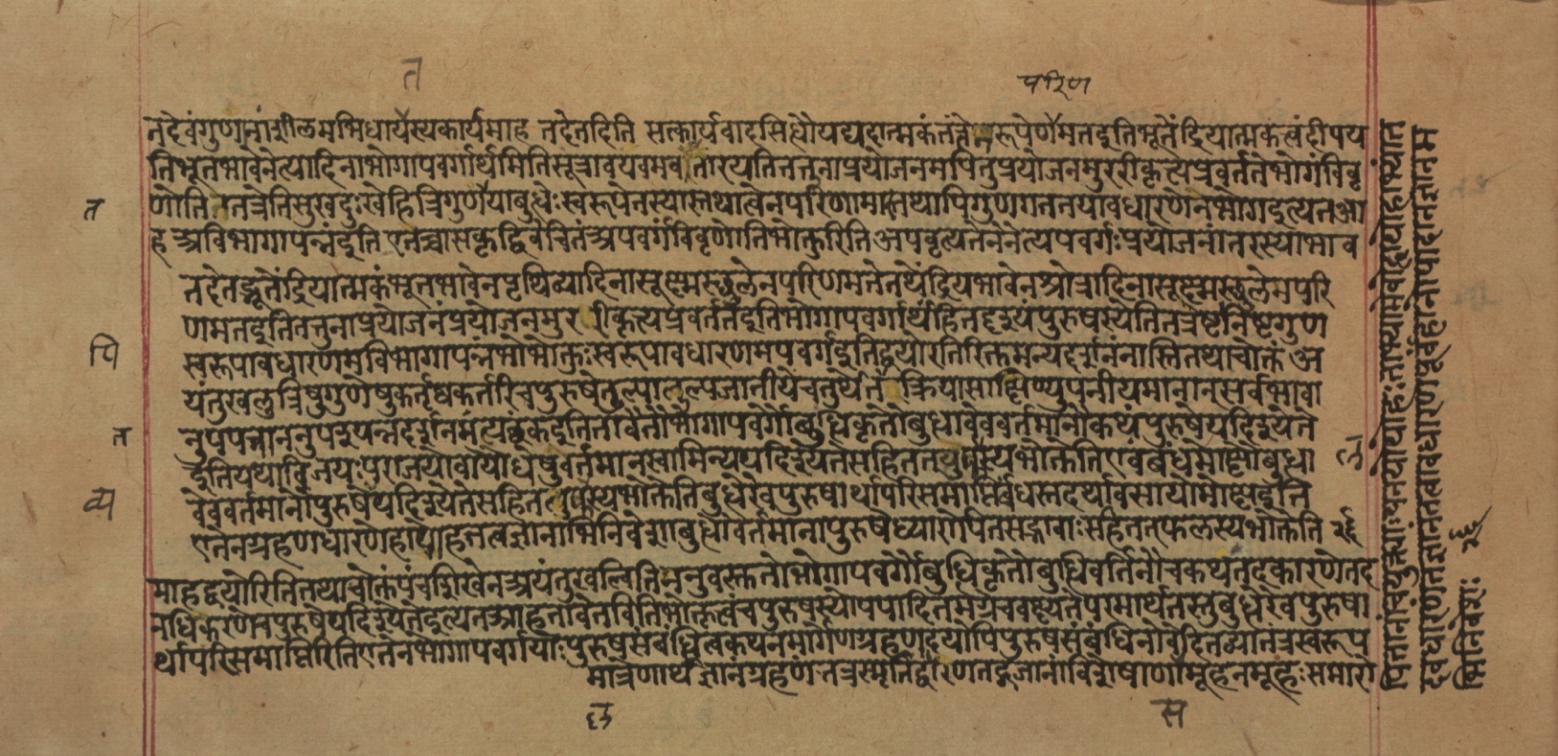 त
परिण
तदेवंगुणानांशीलमभिधायास्यकार्यमाह तदेतदिति सत्कार्यवादसिद्धौयद्यदात्मकंतत्तेनरूपेणमतइतिभूतेंद्रियात्मकत्वंदीपय
तिभूतभावेनेत्यादिनाभोगापवर्गार्थमितिसूत्रावयवमवतारयतितत्तुनाप्रयोजनमपितुप्रयोजनमुररीकृत्यप्रवर्ततेभोगंविवृ
णोतितत्रेतिसुखदुःखेहित्रिगुणयाबुद्धेःस्वरूपेतस्यास्तथात्वेनपरिणामात्तथापिगुणगततयावधारणेनभोगइत्यतआ
ह अविभागापन्नंइति एतच्चासकृद्विवेचितंअपवर्गंविवृणोतिभोक्तुरिति अपवृज्यतेनेनेत्यपवर्गःप्रयोजनांतरस्याभाव
तदेतद्भूतेंद्रियात्मकंभूतभावेनपृथिव्यादिनासूक्ष्मस्थूलेनपरिणमतेतथेंद्रियभावेनश्रोत्रादिनासूक्ष्मस्थूलेनपरि
णमतइतितत्तुनाप्रयोजनंप्रयोजनमुररीकृत्यप्रवर्ततइतिभोगापवर्गार्थंहितदृश्यंपुरुषस्येतितत्रेष्टानिष्टगुण
स्वरूपावधारणमविभागापन्नंभोगोभोक्तुःस्वरूपावधारणमपवर्गइतिद्वयोरतिरिक्तमन्यद्दर्शनंनास्तितथाचोक्तं अ
यंतुखलुत्रिषुगुणेषुकर्तृष्वकर्तरिचपुरुषेतुल्यातुल्यजातीयेचतुर्थेतत्क्रियासाक्षिण्युपनीयमानान्सर्वभावा
नुपपन्नाननुपश्यन्नदर्शनमन्यच्छंकतइतितावेतौभोगापवर्गौबुद्धिकृतौबुद्धावेववर्तमानौकथंपुरुषेव्यपदिश्येते
इतियथाविजयःपराजयोवायोधेषुवर्तमानःस्वामिनिव्यपदिश्यतेसहितत्फलस्यभोक्तेतिएवंबंधमोक्षौबुद्धा
वेववर्तमानौपुरुषेव्यपदिश्येतेसहितत्फलस्यभोक्तेतिबुद्धेरेवपुरुषार्थापरिसमाप्तिर्बंधस्तदर्थावसायोमोक्षइति
एतेनग्रहणधारणोहापोहतत्वज्ञानाभिनिवेशाबुद्धौवर्तमानापुरुषेध्यारोपितसद्भावाःसहितत्फलस्यभोक्तेति १८
माहद्वयोरितितथाचोक्तंपंचशिखेनअयंतुखल्वितिननुवस्तुतोभोगापवर्गौबुद्धिकृतौबुद्धिवर्तिनौचकथंतदकारणेतद
नधिकरणेचपुरुषेव्यपदिश्येतेइत्यतआहतावेतावितिभोक्तृत्वंचपुरुषस्योपपादितमग्रेचवक्ष्यतेपरमार्थतस्तुबुद्धेरेवपुरुषा
र्थापरिसमाप्तिरितिएतेनभोगापवर्गयोःपुरुषसंबंधित्वकथनमार्गेणग्रहणादयोपिपुरुषसंबंधिनोवेदितव्यातत्रस्वरूप
मात्रेणार्थज्ञानंग्रहणंतत्रस्मृतिर्द्धारणंतद्गतानांविशेषाणामूहनमूहःसमारो
पितानांचयुक्त्यापनयोपोहःताभ्यामेवोहापोहाभ्यांत
दवधारणंतत्वज्ञानंतत्वावधारणपूर्वंहानोपादानज्ञानम
भिनिवेशः १८
त
पि
त
व्य
ल